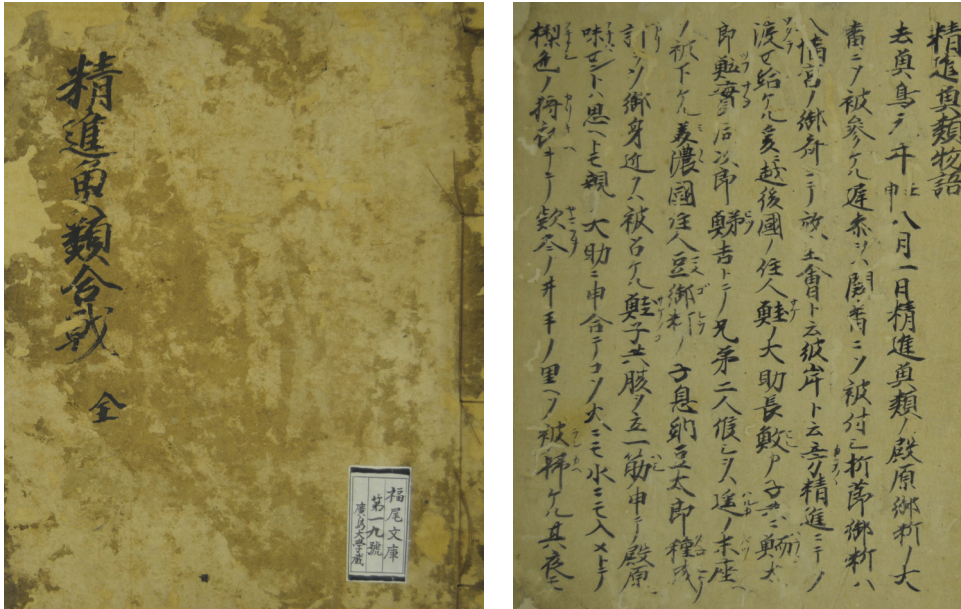 精進魚類合戦
全
福尾文庫
第一九號
廣島大学蔵
精進魚類物語
去魚鳥ノ平 八月一日精進魚類ノ殿原御料ノ大
番ニソ被参ケル遅参ヲハ闕番ニソ被付ケル折節御料ハ
八幡宮ノ御斎ニテ放生會ト云彼岸ト云旁精進ニテ
渡セ給ケル爰越後國ノ住人鮭ノ大助長鰭カ子共ニ
鰤 次郎 吉トテ兄弟二人候シヲ遙ノ末座ヘ
ソ被下ケル美濃國住人豆御料ノ子息納豆太郎種成
計ヲソ御身近フハ被召ケル鮭子共腹ヲ立一筋申テ殿原
味 セントハ思ヘトモ親大助ニ申合テコソ火ニモ水ニモ入メトテ
色ノ狩衣キテ款冬ノ井手ノ里ヘソ被帰ケル其夜ニ